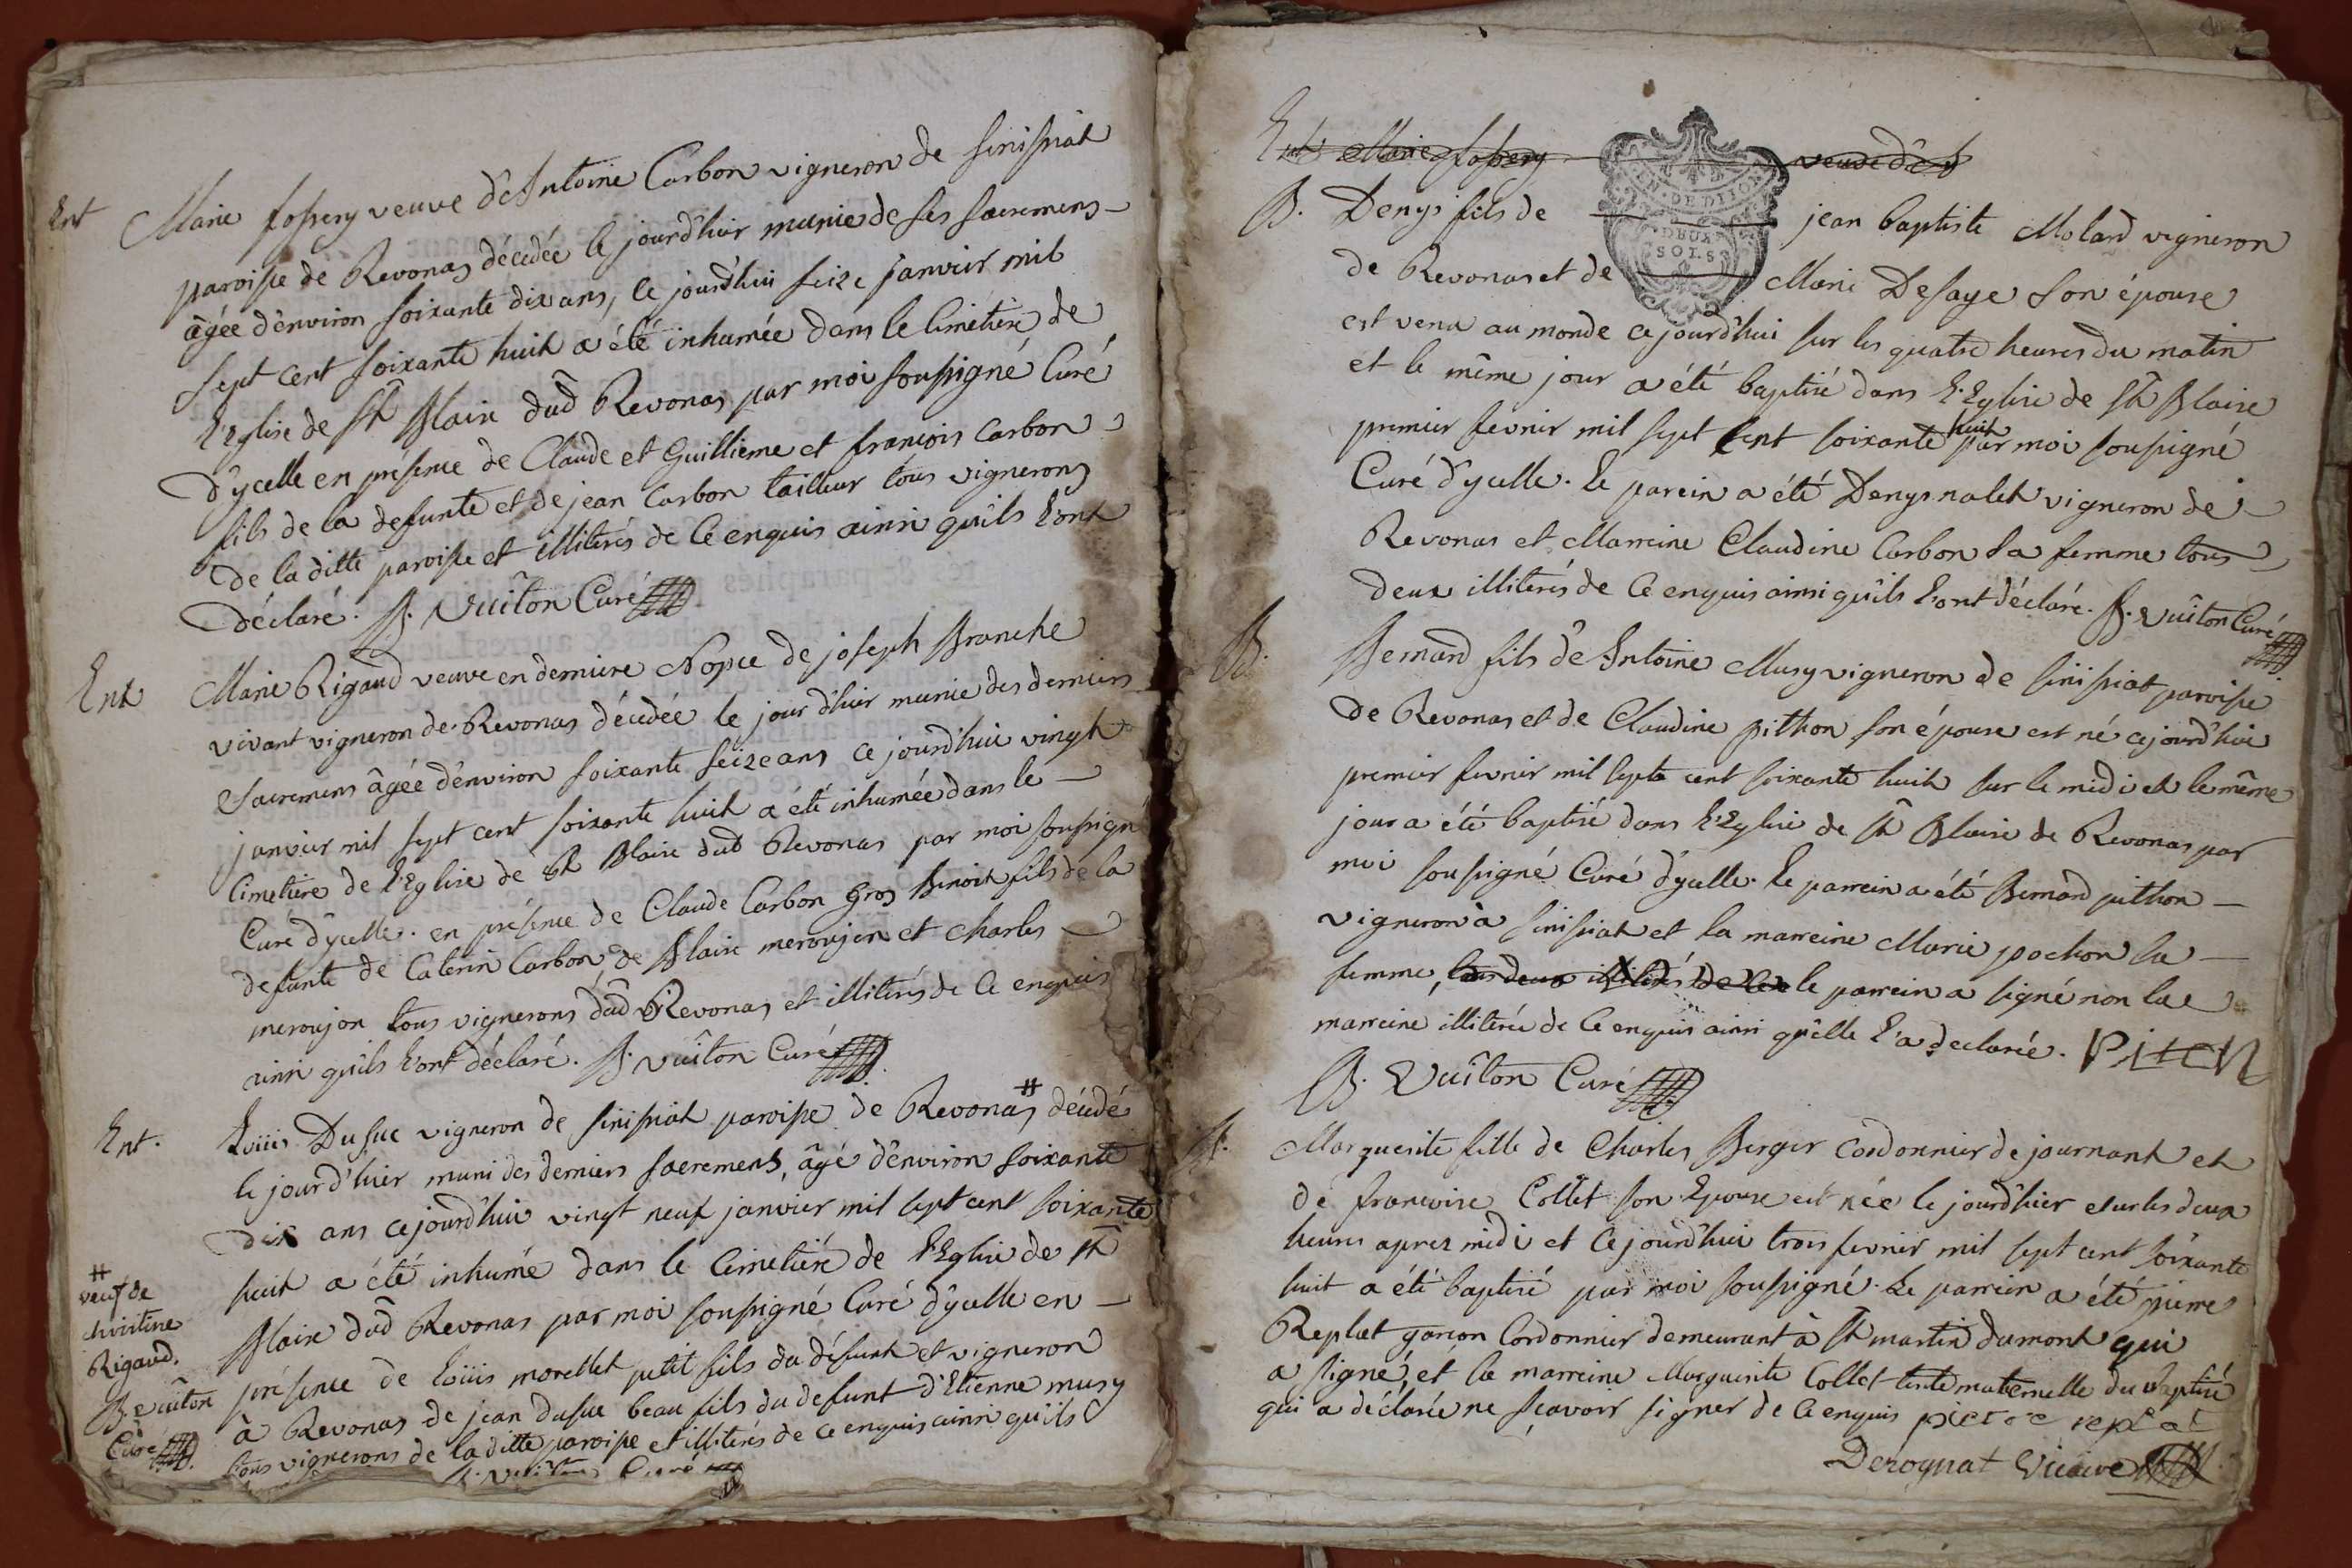 Ent Marie fossery veuve d'Antoine Carbon vigneron de sinissiat
paroisse de Revonas décédée le jourd'hier munie de ses sacremens
âgée d'environ soixante dix ans, ce jourd'hui seize janvier mil
sept cent soixante huit a été inhumée dans le Cimetiere de
l'Eglise de St Blaise dud Revonas par moi soussigné Curé
d'ycelle en présence de Claude et Guillieme et françois Carbon
fils de la defunte et de jean Carbon tailleur tous vignerons
de la ditte paroisse et illiterés de ce enquis ainsi qu'ils l'ont
déclaré. B. Vuiton Curé
Ent Marie Rigaud veuve en derniere Nopce de joseph Branche
vivant vigneron de Revonas décédée le jour d'hier munie des derniers
Sacremens âgée d'environ soixante seize ans ce jourd'hui vingt
janvier mil sept cent soixante huit a été inhumée dans le
Cimetiere de l'Eglise de St Blaise dud Revonas par moi soussigné
Curé d'ycelle. en présence de Claude Carbon Gros Benoit fils de la
defunte de Caterin Carbon de Blaise meroujon et charles
meroujon tous vignerons dud Revonas et illiterés de ce enquis
ainsi qu'ils l'ont déclaré. B. Vuiton Curé
Ent. Loüis Dusuc vigneron de sinissiat paroisse de Revonas # décédé
le jourd'hier muni des derniers sacremens, âgé d'environ soixante
dix ans cejourd'hui vingt neuf janvier mil sept cent soixante
huit a été inhumé dans le Cimetiere de l'Eglise de St
Blaise dud Revonas par moi soussigné Curé d'ycelle en
présence de Loüis morellet petit fils du défunt et vigneron
à Revonas de jean dusuc beau fils du defunt d'Etienne musy
tous vignerons de la ditte paroisse et illiterés de ce enquis ainsi qu'ils
B. Vuiton Curé
#
veuf de
christine
Rigaud.
B. vuiton
Curé
Ent Marie fossery veuve d'A
B. Denys fils de jean baptiste Molard vigneron
de Revonas et de Marie Desaye son épouse
est venu au monde cejourd'hui sur les quatre heures du matin
et le même jour a été baptisé dans l'Eglise de St Blaise
premier fevrier mil sept cent soixante huit par moi soussigné
Curé d'ycelle. Le parein a été Denys nalet vigneron de
Revonas et Marreine Claudine Carbon sa femme tous
deux illiterés de ce enquis ainsi qu'ils l'ont déclaré. B. Vuiton Curé
B. Bernard fils d'Antoine Musy vigneron de sinissiat paroisse
de Revonas et de Claudine pithon son épouse est né cejourd'hui
premier fevrier mil sept cent soixante huit sur le midi et le même
jour a été baptisé dans l'Eglise de St Blaise de Revonas par
moi soussigné Curé d'ycelle. Le parrein a été Bernard pithon
vigneron à sinissiat et la marreine Marie pochon sa
femme, tous deux illiterés de ce le parrein a signé non la
marreine illiterée de ce enquis ainsi qu'elle l'a declarée. PitoN
B. Vuiton Curé
B. Marguerite fille de Charles Berger Cordonnier de journant et
de francoise Collet son Epouse est née le jourd'hier sur les deux
heures apres midi et cejourd'hui trois fevrier mil sept cent soixante
huit a été baptisé par moi soussigné. Le parrein a été pierre
Replat garcon Cordonnier demeurant à St martin dumont qui
a signé, et la marreine Marguerite Collet tante maternelle du baptisé
qui a déclarée ne sçavoir signer de ce enquis pierre replat
Derognat Vicaire
EN. DE DIJON
DEUX
SOLS